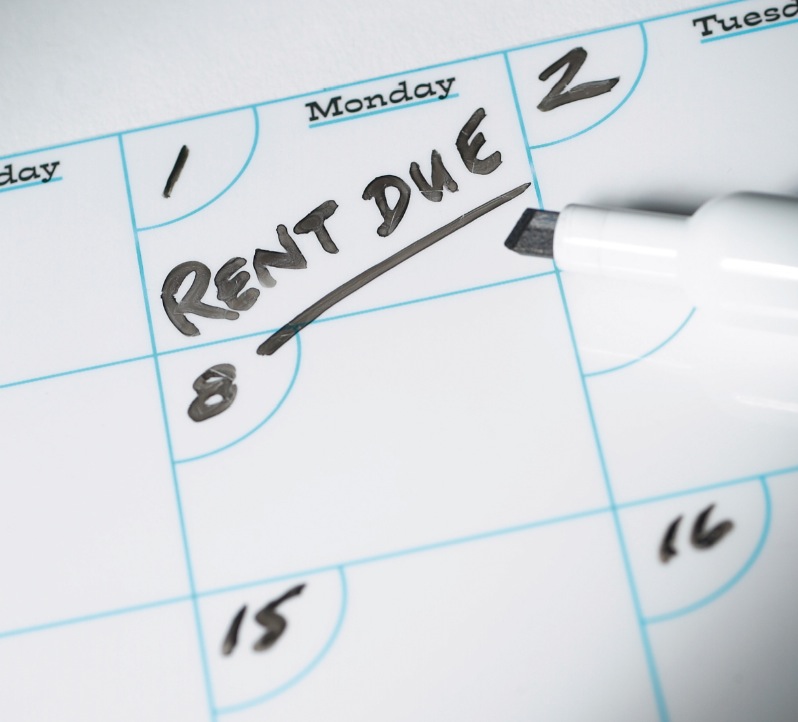 day
Monday
Tuesd
1
2
RENT DUE
8
15
16